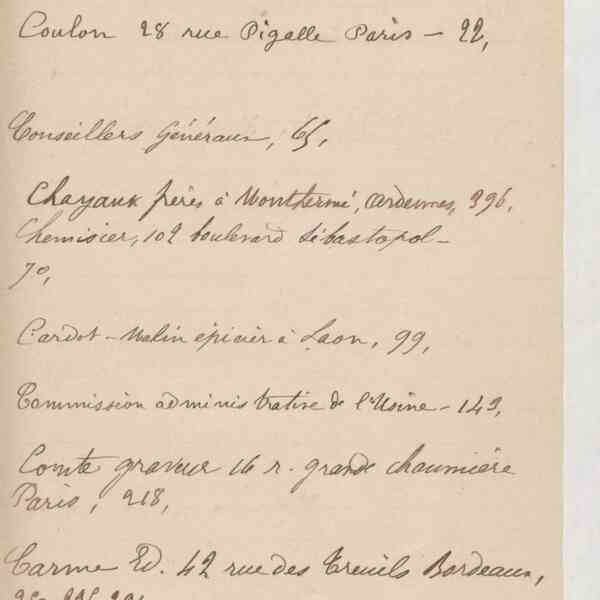 Coulon 28 rue Pigalle Paris - 22,
Conseillers Généraux, 65,
Chayaux frères à Monthermé, Ardennes, 396,
Chemisier, 102 boulevard Sébastopol -
70,
Cardot-Malin épicier à Laon, 99,
Commission administrative de l'Usine - 143,
Comte graveur 16 r. grande chaumière
Paris, 218,
Carme Ed. 42 rue des Treuils Bordeaux,